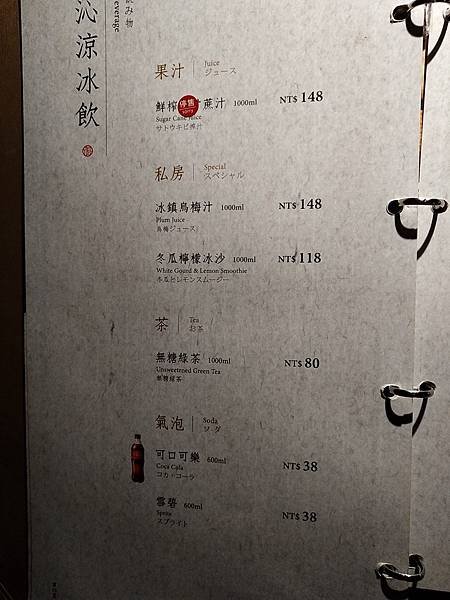 沁涼冰飲
飲み物
everage
果汁
Juice
ジュース
鮮榨 蔗汁 1000ml NT$ 148
停售
Sugar Cane Juice
サトウキビ搾汁
私房
Special
スペシャル
冰鎮烏梅汁 1000ml NT$ 148
Plum Juice
烏梅ジュース
冬瓜檸檬冰沙 1000ml NT$ 118
White Gourd & Lemon Smoothie
冬瓜とレモンスムージー
茶
Tea
お茶
無糖綠茶 1000ml NT$ 80
Unsweetened Green Tea
無糖緑茶
氣泡
Soda
ソーダ
可口可樂 600ml NT$ 38
Coca Cola
コカ・コーラ
雪碧 600ml NT$ 38
Sprite
スプライト